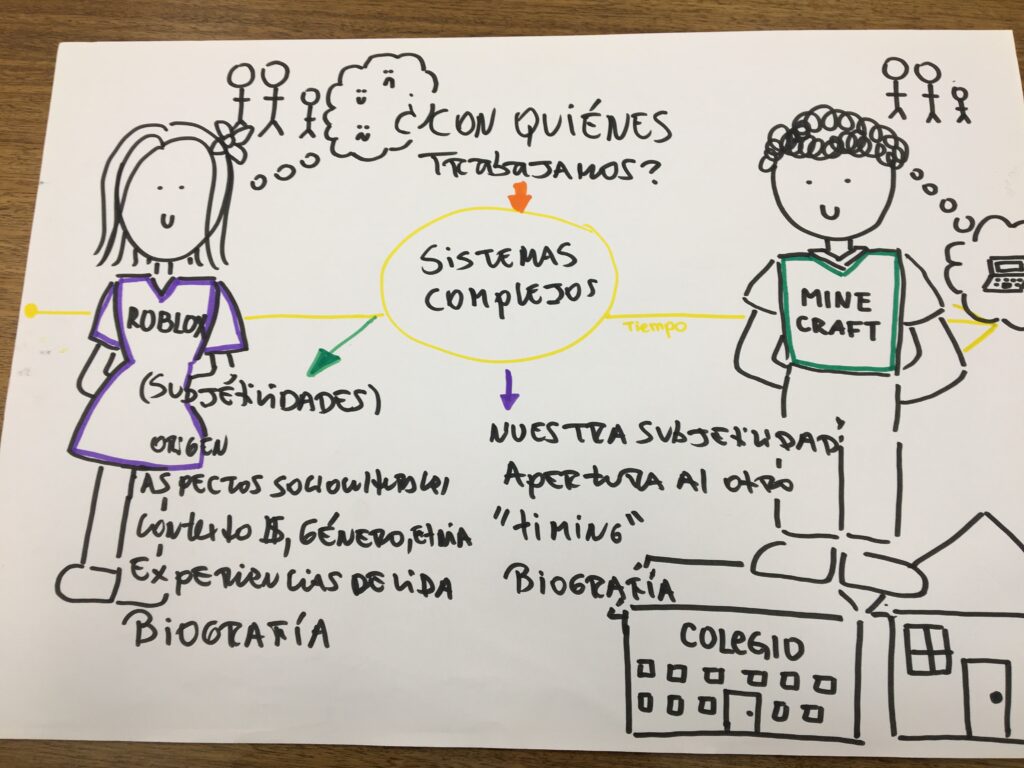 ¿CON QUIÉNES
TRABAJAMOS?
SISTEMAS
COMPLEJOS
Tiempo
ROBLOX
MINE
CRAFT
(SUBJETIVIDADES)
ORIGEN
ASPECTOS SOCIOCULTURALES
Contexto $, GÉNERO, Etnia
EXPERIENCIAS DE VIDA
BIOGRAFÍA
NUESTRA SUBJETIVIDAD
APERTURA Al otro
"timing"
BIOGRAFÍA
COLEGIO